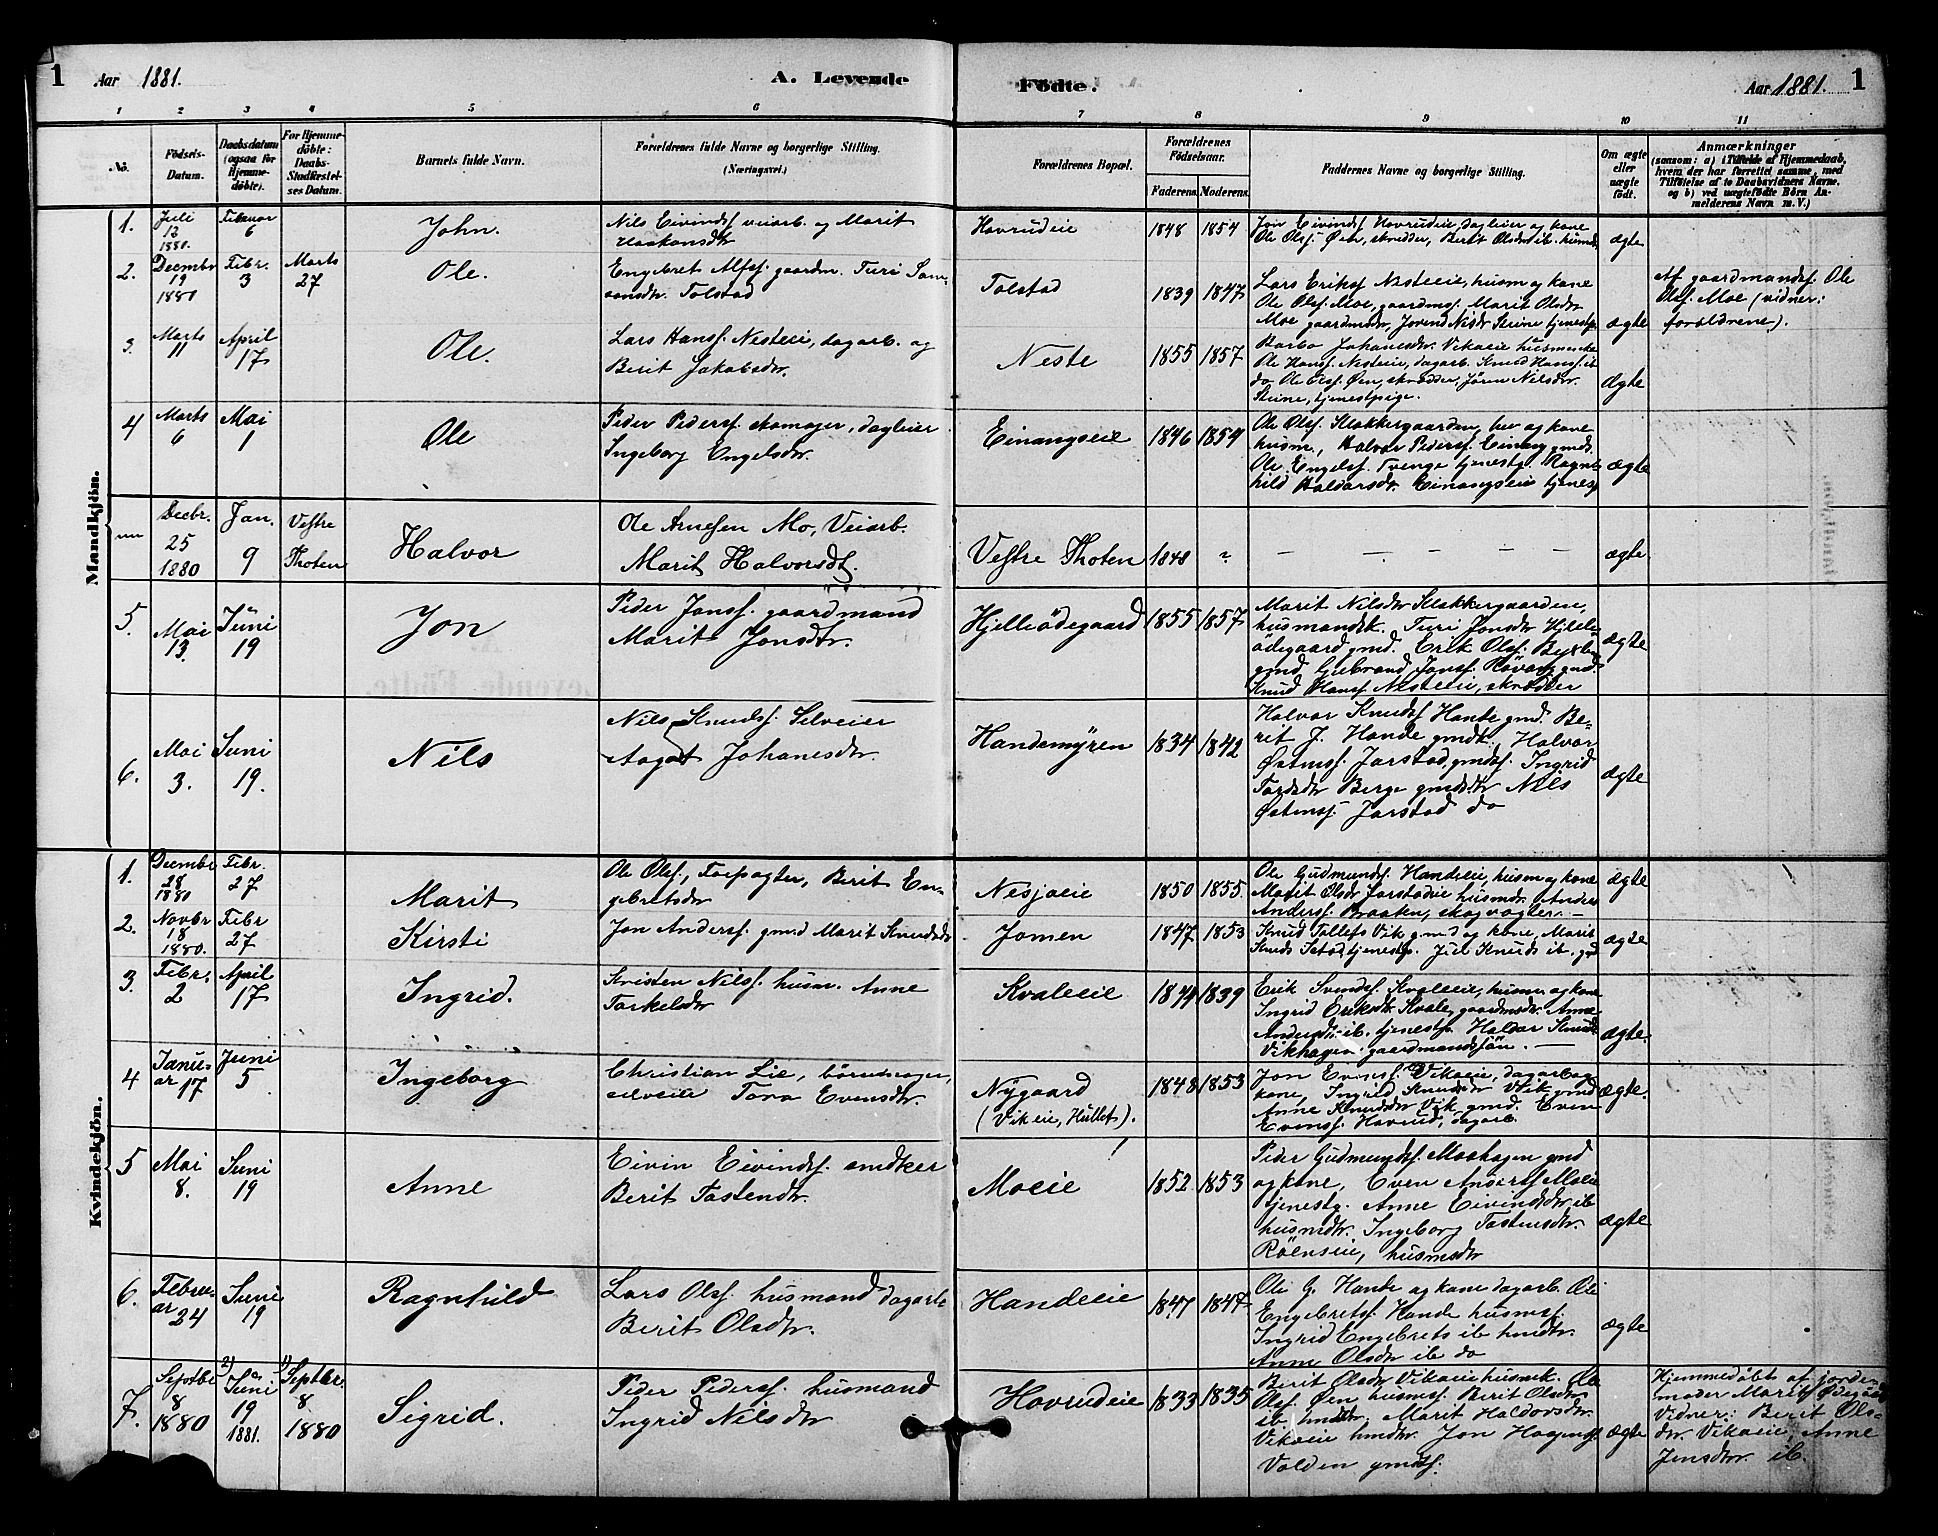 1 Aar 1881. A. Levende Födte. Aar 1881. 1
1 2 3 4 5 6 7 8 9 10 11
No.
Födsels-
Datum.
Daabsdatum
(ogsaa for
Hjemme-
döbte).
For Hjemme-
döbte:
Daabs-
Stadfæstel-
ses Datum.
Barnets fulde Navn.
Forældrenes fulde Navne og borgerlige Stilling.
(Næringsvei.)
Forældrenes Bopæl.
Forældrenes
Födselsaar.
Faderens. Moderens.
Faddernes Navne og borgerlige Stilling.
Om ægte
eller
uægte
født.
Anmærkninger
(saasom: a) i Tilfælde af Hjemmedaab,
hvem der har forrettet samme, med
Tilföielse af to Daabsvidners Navne,
og b) ved uægtefödte Börn An-
melderens Navn m. V.)
Mandkjön.
1.
Juli
12
1880.
Februar
6
John.
Nils Eivindsf. veiarb. og Marit
Haakonsdtr
Hovrudeie
1848 1854
Jon Eivindsf. Hovrudeie, dagleier og kone
Ole Olsf. Øen, skrædder, Berit Olsdtr ib. husmd.
ægte
2.
Decembr
19
1880
Febr.
3
Marts
27
Ole.
Engebret Alfsf. gaardm. Turi
Tolstad
Tolstad
1839 1847
Lars Eriksf. Nesteeie, husm og kone
Ole Olsf. Moe, gaardmsf. Marit Olsdtr
Moe gaardmdtr, Jorend Nisdtr Steine tjenestp.
ægte
Af gaardmandsf. Ole
Olsf. Moe (vidner:
forældrene).
3.
Marts
11
April
17
Ole.
Lars Hansf. Nesteeie, dagarb. og
Berit Jakobsdtr.
Neste
1855 1857
Barbo Johanesdtr. Vikaeie husmenke
Ole Hansf. Nesteeie, dagarb. Knud Hansf. ib
do Ole Olsf. Øen, skrædder, Jören Nilsdtr.
Steine, tjenestpige.
ægte
4
Marts
6
Mai
1
Ole
Peder Pedersf. skomager, dagleier
Ingeborg Engelsdtr.
Einangseie
1846 1854
Ole Olsf. Klokkergaarden, lev og kone
husm., Halvor Pedersf. Einang gmds.
Ole Engelsf. Tvenge tjenestg. Ragn-
hild Haldorsdtr. Einangseie tjenesp
ægte
Decbr.
25
1880
Jan.
9
Vestre
Thoten
Halvor
Ole Arnesen Mo, Veiarb.
Marit Halvorsdt.
Vestre Thoten
1848 ?
— — — — —
ægte
5.
Mai
13.
Juni
19
Jon
Peder Jonsf. gaardmand
Marit Jonsdtr.
Hjelleödegaard
1855 1857
Marit Nilsdtr Klokkergaardeie,
husmandsk. Turi Jonsdtr Hjelle-
ödegaard gmd. Erik Olsf.
gmd. Gulbrand Jonsf. gmds.
Knud Hansf. Nesteeie, skrædder
ægte
6.
Mai
3.
Juni
19.
Nils
Nils Knudsf. Selveier
Aagot Johanesdtr.
Handemyren
1834 1842
Halvor Knudsf Hande gmd. Be-
rit J. Hande gmdk. Halvor
Østensf. Jarstad, gmdsf. Ingrid
Tordsdtr Berge gmdsdtr Nils
Østensf. Jarstad do
ægte
Kvindekjön.
1.
Decembr
28
1880
Febr.
27
Marit
Ole Olsf., Forpagter, Berit En-
gebretsdtr
Nesjaeie
1850 1855
Ole Gudmundsf. Handeeie, husm og kone
Marit Olsdtr Jarstadeie husmdtr. Andres
Andersf. Braaten, skogvogter. —
ægte
2.
Novbr
18
1880.
Febr
27
Kirsti
Jon Andersf. gmd Marit Knudsdtr
Jomen
1847 1853
Knud Tollefs Vik gmd og kone, Marit
Knuds tjenestp. Juel Knuds ib. gd
ægte
3.
Febr.
2
April
17
Ingrid.
Kristen Nilsf. husm. Anne
Torkelsdtr
Kvaleeie
1844 1839
Erik Svendsf. Kvaleeie, husm og kone
Ingrid Eriksdtr Kvale, gaardmsdtr. Anne
Andersdtr ib. tjenestp. Haldor Knuds
Vikhagen gaardmandssön. —
ægte.
4
Janu-
ar 17
Juni
5
Ingeborg
Christian Lie,
selveier Tora Evensdtr.
Nygaard
(Vikeie, Hullet).
1848 1853
Jon Evensf. Vikaeie, dagarb og
kone, Ingrid Knudsdtr Vik gmd
Anne Knudsdtr Vik gmd. Even
Evensf. Hovrud, dagarb.
ægte.
5
Mai
8.
Juni
19
Anne
Eivin Eivindsf. snedker
Berit Tostendtr.
Moeie
1852 1853
Peder Gudmundsf. Moahagen gmd
og kone, Even Andersf Moeie
tjenestg. Anne Eivindsdtr ib
husmdtr. Ingeborg Tostensdtr.
Röenseie, husmsdtr
ægte
6.
Februar
24
Juni
19
Ragnhild
Lars Olsf. husmand dagarb
Berit Olsdtr.
Handeeie
1847 1847
Ole G. Hande og kone dagarb. Ole
Engebretsf. Hande husmsf.
Ingrid Engebrets ib hmdtr.
Anne Olsdtr ib do
ægte
7.
Septbr
8
1880
2)
Juni
19
1881.
1)
Septbr.
8
1880
Sigrid.
Peder Pedersf. husmand
Ingrid Nilsdtr
Hovrudeie
1833 1835
Berit Olsdtr Vikaeie husmk. Ole
Olsf. Øen husmsf. Berit Olsdtr
ib hmdtr, Marit Haldorsdtr.
Vikaeie hmdtr. Jon Haagensf
Volden gmdsf.
ægte
Hjemmedöbt af jorde-
moder Marit Ödegaard
Vidner: Berit Ols-
dtr. Vikaeie, Anne
Jensdtr. ib.